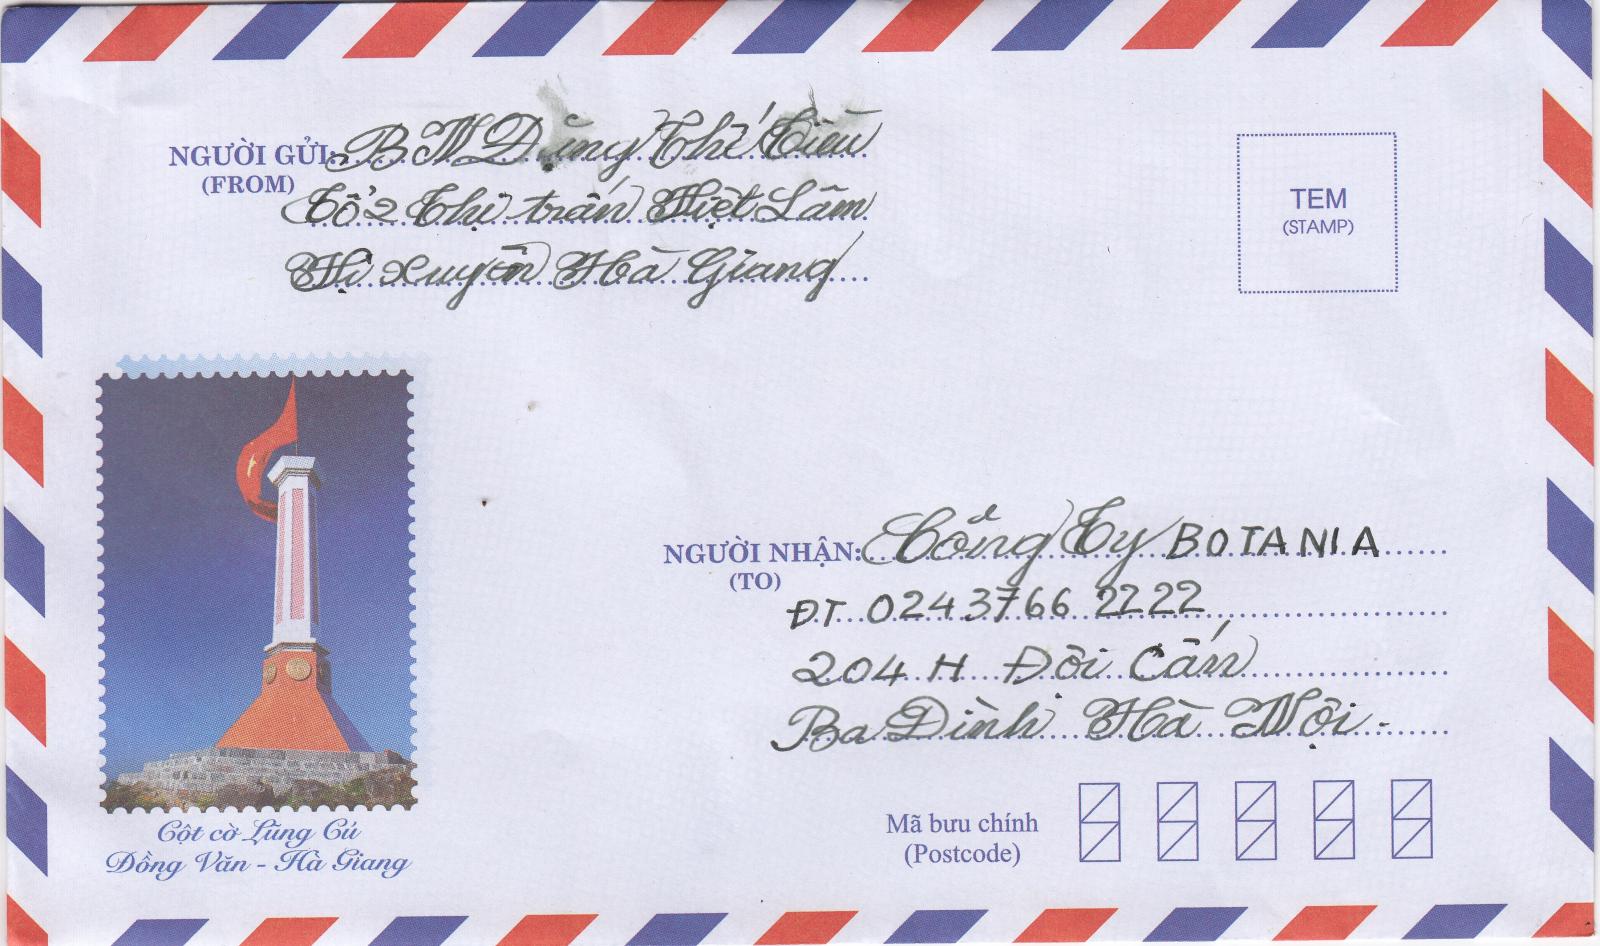 NGƯỜI GỬI: BN Dùng Thế Tiều
(FROM)
Tổ 2 Thị trấn Việt Lâm
Vị Xuyên Hà Giang
TEM
(STAMP)
NGƯỜI NHẬN: Công Ty BOTANIA
(TO)
ĐT 0243766 2222
204 H Đội Cấn
Ba Đình Hà Nội
Cột cờ Lũng Cú
Đồng Văn - Hà Giang
Mã bưu chính
(Postcode)